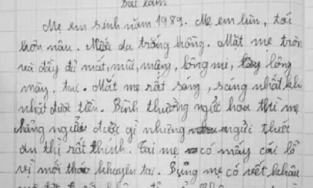 Bài làm
Mẹ em sinh năm 1989. Mẹ em lùn, tóc
hơn nâu. Màu da trắng hồng. Mặt mẹ tròn
và đầy đủ mắt, mũi, miệng, lông mũi, lông
mày, tai. Mắt mẹ rất sáng, sáng nhất khi
nhặt được tiền. Bình thường ngửi hoa thì mẹ
chẳng ngửi được gì nhưng ngửi thức
ăn thì rất thính. Tai mẹ có mấy cái lỗ
vì mới tháo khuyên tai. Bụng mẹ có vết khâu